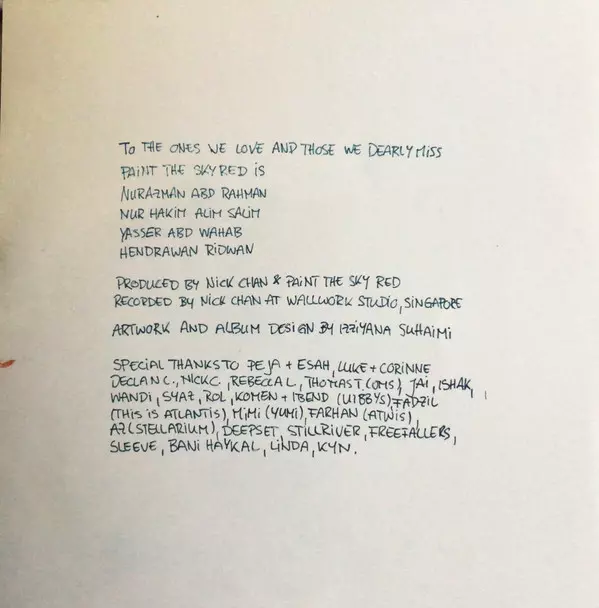 TO THE ONES WE LOVE AND THOSE WE DEARLY MISS
PAINT THE SKY RED IS
NURAZMAN ABD RAHMAN
NUR HAKIM ALIM SALIM
YASSER ABD WAHAB
HENDRAWAN RIDWAN
PRODUCED BY NICK CHAN & PAINT THE SKY RED
RECORDED BY NICK CHAN AT WALLWORK STUDIO, SINGAPORE
ARTWORK AND ALBUM DESIGN BY IZZIYANA SUHAIMI
SPECIAL THANKS TO PEJA + ESAH, LUKE + CORINNE
DECLAN C., NICK C., REBECCA L, THOMAS T (OMS), JAI, ISHAK,
WANDI, SYAZ, ROL, KOMEN + IBEND (UIBBYS) FADZIL
(THIS IS ATLANTIS), MIMI (YUMI), FARHAN (ATWIS),
AZ (STELLARIUM), DEEPSET, STILLRIVER, FREEFALLERS,
SLEEVE, BANI HAYKAL, LINDA, KYN.